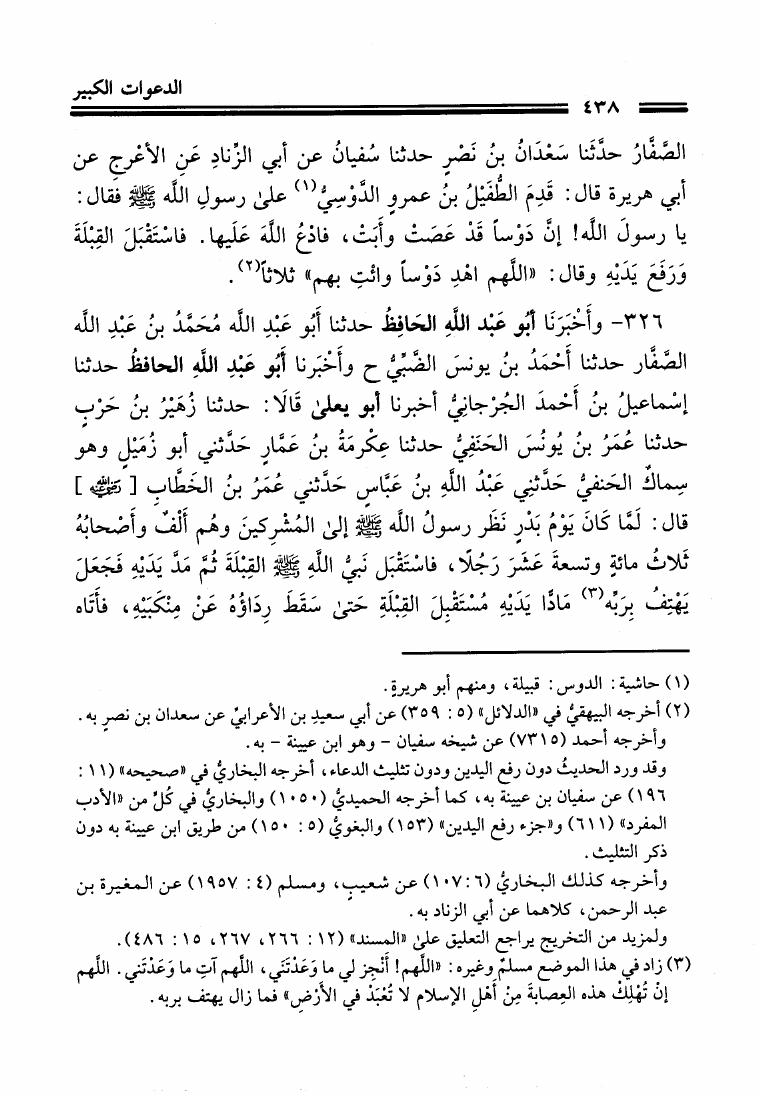 الدعوات الكبير
٤٣٨
الصَّفَّارُ حدَّثَنا سَعْدَانُ بنُ نَصْرٍ حدثنا سُفيانُ عن أبي الزِّنادِ عَنِ الأعْرجِ عن
أبي هريرة قال: قَدِمَ الطُّفَيْلُ بنُ عمرٍو الدَّوْسِيُّ(١) علىٰ رسولِ الله ﷺ فقال:
يا رسولَ الله! إنَّ دَوْساً قَدْ عَصَتْ وأبَتْ، فادْعُ اللهَ عَلَيها. فاسْتَقْبَلَ القِبْلَةَ
وَرَفَعَ يَدَيْهِ وقال: «اللَّهم اهْدِ دَوْساً وائتِ بهم» ثلاثاً(٢).
٣٢٦- وأَخْبَرَنَا أبُو عَبْد اللهِ الحَافِظُ حدثنا أَبُو عَبْدِ الله مُحَمَّدُ بنُ عَبْدِ الله
الصَّفَّار حدثنا أحْمَدُ بنُ يونسَ الضَّبِّيُّ ح وأخْبَرنا أَبُو عَبْدِ اللهِ الحافظُ حدثنا
إسْماعيلُ بنُ أَحْمدَ الجُرْجانِيُّ أخبرنا أبو يعلىٰ قَالَا: حدثنا زُهَيْرُ بنُ حَرْبٍ
حدثنا عُمَرُ بنُ يُونُسَ الحَنَفِيُّ حدثنا عِكْرِمَةُ بنُ عَمَّارٍ حَدَّثني أبو زُمَيْلٍ وهو
سِماكٌ الحَنفيُّ حَدَّثنِي عَبْدُ اللهِ بنُ عَبَّاسٍ حَدَّثني عُمَرُ بنُ الخَطَّابِ [رضي الله عنه]
قال: لَمَّا كَانَ يَوْمُ بَدْرٍ نَظَر رسولُ الله ﷺ إلىٰ المُشْرِكينَ وهُم أَلْفٌ وأَصْحابُهُ
ثَلاثُ مائةٍ وتسعةَ عَشَرَ رَجُلًا، فاسْتَقْبَل نَبيُّ اللهِ ﷺ القِبْلَةَ ثُمَّ مَدَّ يَدَيْهِ فَجَعَلَ
يَهْتِفُ بِرَبِّه(٣) مَادًّا يَدَيْهِ مُسْتَقْبِلَ القِبْلَةِ حَتىٰ سَقَطَ رِدَاؤُهُ عَنْ مِنْكَبَيْهِ، فأَتَاه
(١) حاشية: الدوس: قبيلة، ومنهم أبو هريرةِ.
(٢) أخرجه البيهقيُّ في «الدلائل» (٥: ٣٥٩) عن أبي سعيدِ بن الأعرابيِّ عن سعدان بن نصرٍ به.
وأخرجه أحمد (٧٣١٥) عن شيخه سفيان - وهو ابن عيينة - به.
وقد ورد الحديثُ دون رفع اليدين ودون تثليث الدعاء، أخرجه البخاريُّ في «صحيحه» (١١:
١٩٦) عن سفيان بن عيينة به، كما أخرجه الحميديُّ (١٠٥٠) والبخاريُّ في كُلِّ من «الأدب
المفرد» (٦١١) و«جزء رفع اليدين» (١٥٣) والبغويُّ (٥: ١٥٠) من طريق ابن عيينة به دون
ذكر التثليث.
وأخرجه كذلك البخاريُّ (٦: ١٠٧) عن شعيبٍ، ومسلم (٤: ١٩٥٧) عن المغيرة بن
عبد الرحمن، كلاهما عن أبي الزناد به.
ولمزيد من التخريج يراجع التعليق علىٰ «المسند» (١٢: ٢٦٦، ٢٦٧، ١٥: ٤٨٦).
(٣) زاد في هذا الموضع مسلمٌ وغيره: «اللَّهم! أَنْجِز لي ما وَعَدْتَني، اللَّهم آتِ ما وَعَدْتَني. اللَّهم
إنْ تُهْلِكْ هذه العِصابةَ مِنْ أهْلِ الإسلامِ لا تُعْبَدْ في الأرْضِ» فما زال يهتف بربه.